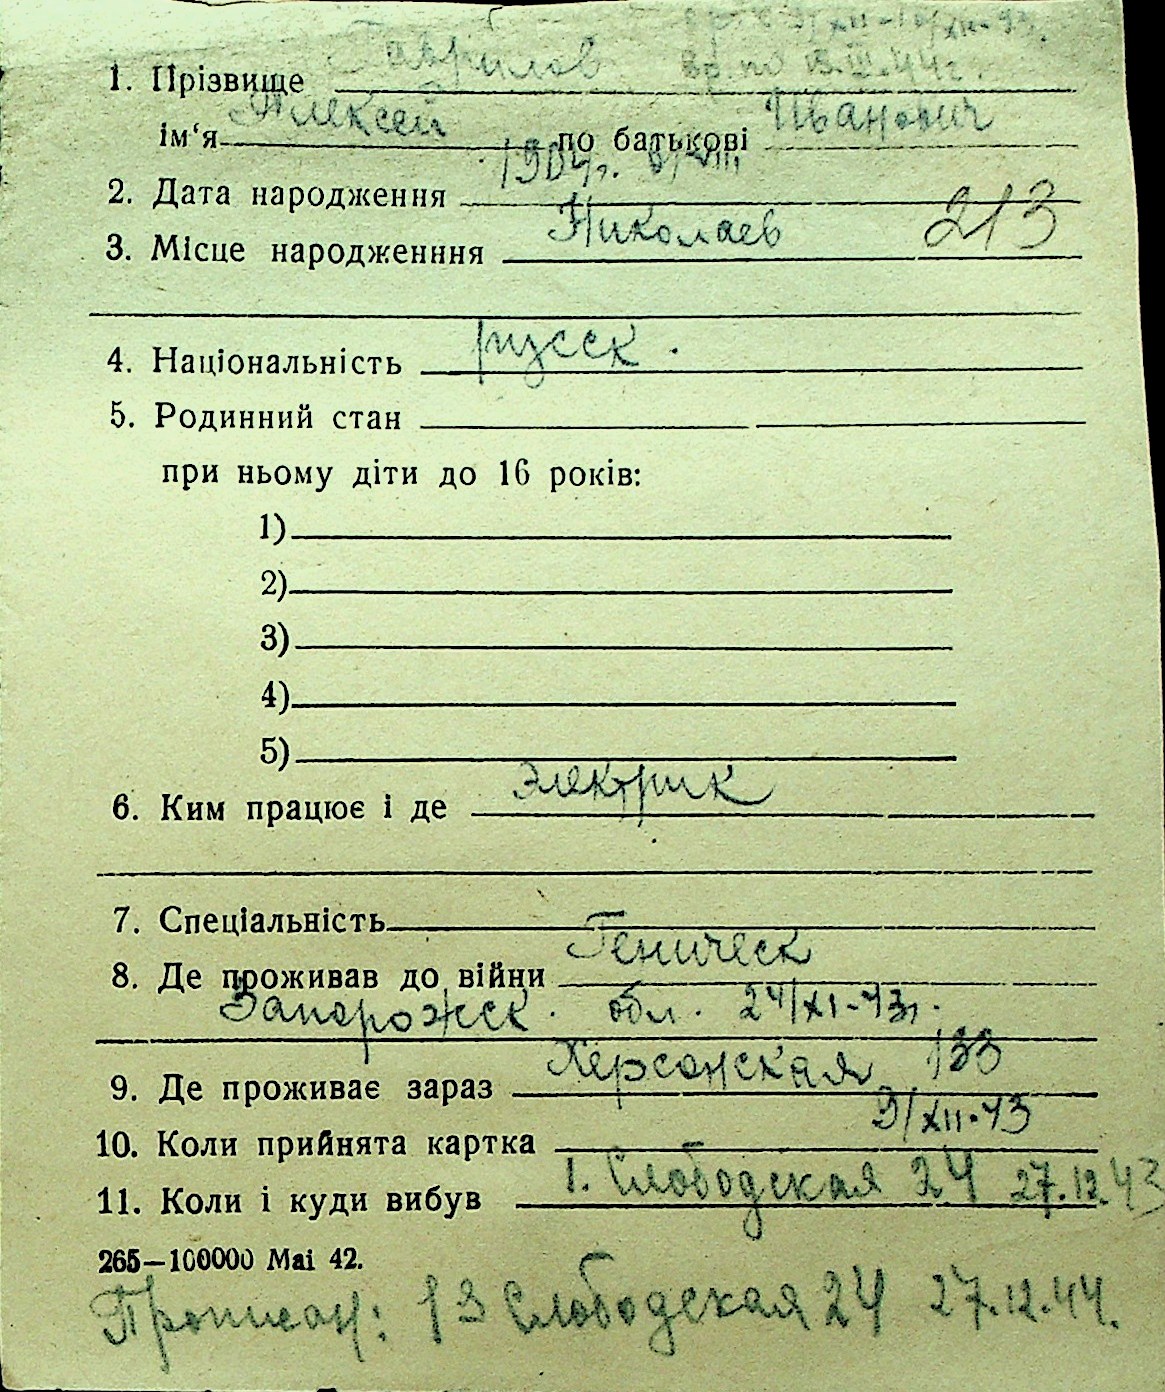 вр. с 9/XII-10/XII-43.
1. Прізвище Гаврилов вр. по 13.III.44г.
ім‘я Алексей по батькові Иванович
2. Дата народження 1904г. 8/VIII
3. Місце народженння Николаев 213
4. Національність русск.
5. Родинний стан
при ньому діти до 16 років:
1)
2)
3)
4)
5)
6. Ким працює і де электрик
7. Спеціальність
8. Де проживав до війни Геническ
Запорожск. обл. 24/XI-43г.
9. Де проживає зараз Херсонская 133
10. Коли прийнята картка 9/XII-43
11. Коли і куди вибув 1. Слободская 24 27.12.43
265—100000 Mai 42.
Прописан: 13 Слободская 24 27.12.44.